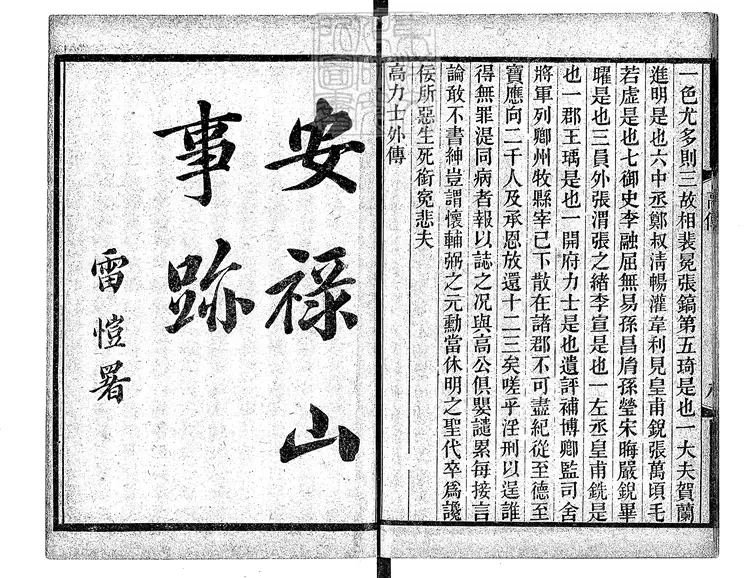 一色尤多則三故相裴冕張鎬第五琦是也一大夫賀蘭
進明是也六中丞鄭叔清暢灌韋利見皇甫銳張萬頃毛
若虛是也七御史李融屈無易孫昌胤孫鎣宋晦嚴銳畢
曜是也三員外張渭張之緒李宣是也一左丞皇甫銑是
也一郡王瑀是也一開府力士是也遺評補博卿監司舍
將軍列卿州牧縣宰已下散在諸郡不可盡紀從至德至
寶應向二千人及承恩放還十二三矣嗟乎淫刑以逞誰
得無罪湜同病者報以誌之况與高公俱嬰譴累每接言
論敢不書紳豈謂懷輔弼之元勳當休明之聖代卒為讒
佞所惡生死銜寃悲夫
高力士外傳
高傳
八
安祿山
事跡
雷愷署